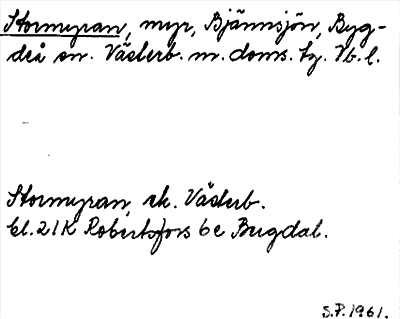 Stormyran, myr, Bjännsjön, Byg-
deå sn. Västerb. m. doms. tg. Vb. l.
Stormyran, ek. Västerb.
bl. 21K Robertsfors 6e Bugdal.
S.P. 1961.